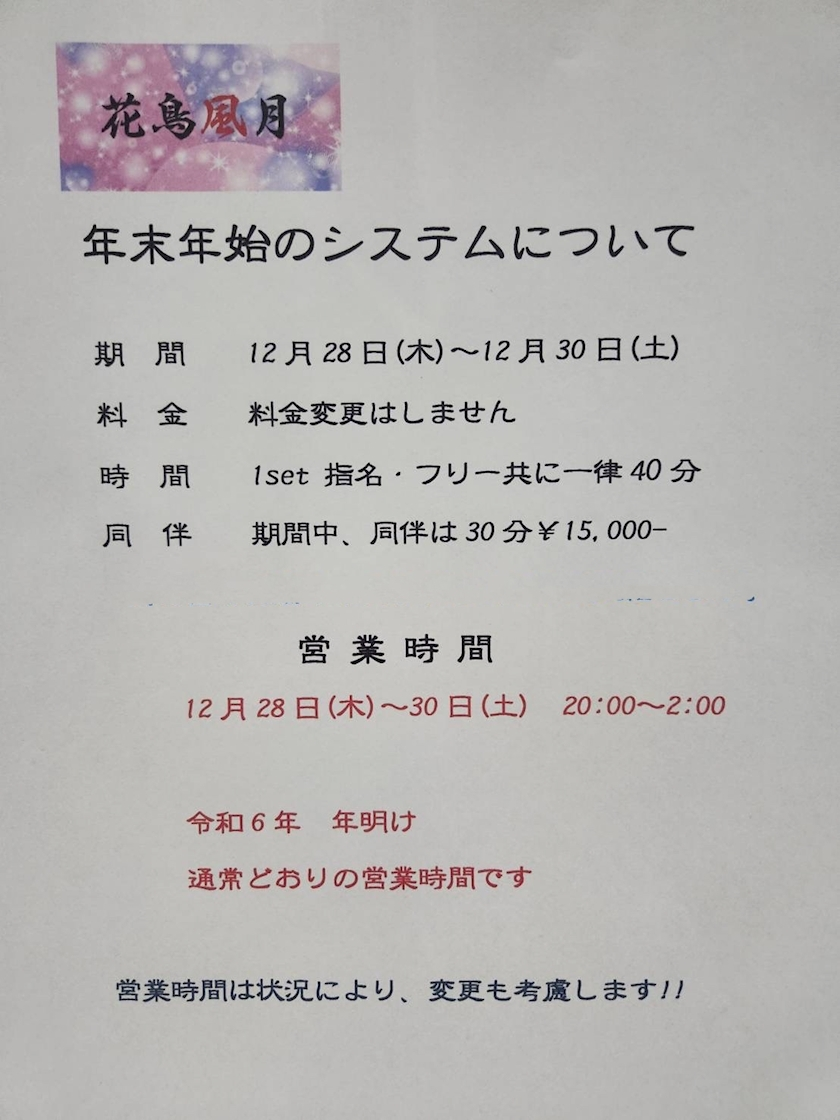 花鳥風月
年末年始のシステムについて
期 間 12月28日(木)~12月30日(土)
料 金 料金変更はしません
時 間 1set 指名・フリー共に一律40分
同 伴 期間中、同伴は30分¥15,000-
営業時間
12月28日(木)~30日(土) 20:00~2:00
令和6年 年明け
通常どおりの営業時間です
営業時間は状況により、変更も考慮します!!